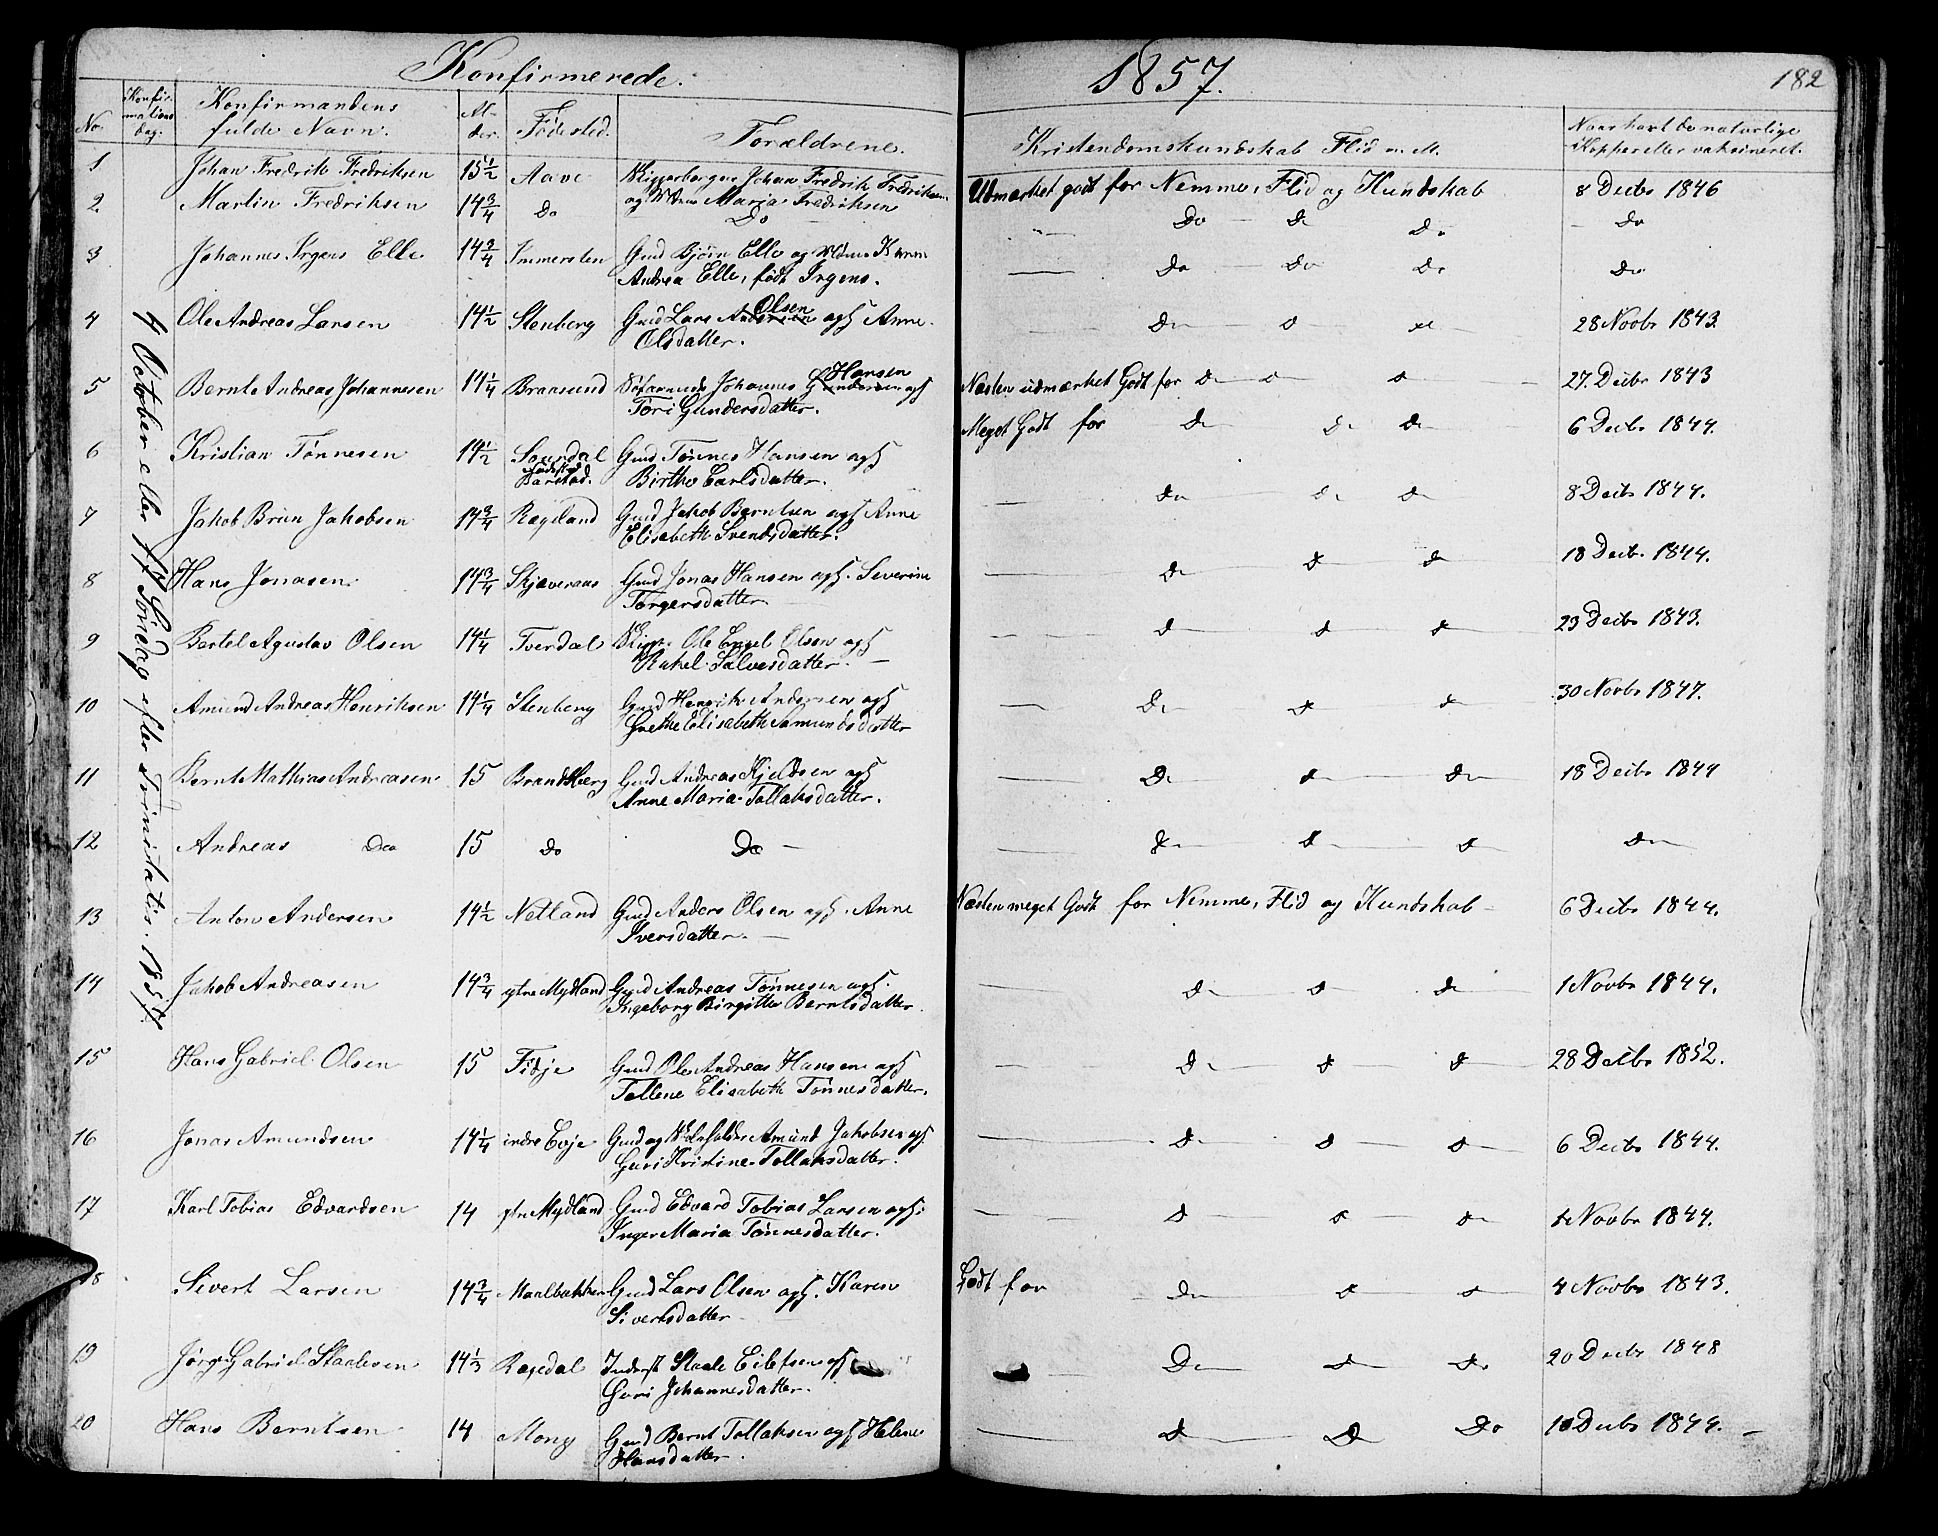 Konfirmerede. 1857. 182
No. Konfirmations dag. Konfirmandens fulde Navn. Alder. Fødested. Forældrene. Kristendomskundskab Flid m. M. Naar havt de naturlige Kopper eller vaksineret.
4 October eller 17 Søndag efter Trinitatis. 1857.
1 Johan Fredrik Fredriksen 15 1/2 Aave Skipperborger Johan Fredrik Fredriksen og Mdme Maria Fredriksen Udmærket godt for Nemme, Flid og Kundskab 8 Decbr 1846
2 Martin Fredriksen 14 3/4 Do Do — Do Do Do — Do
3 Johannes Irgens Elle 14 3/4 Immersten Gmd Bjørn Elle og Mdme Karen Andrea Elle, født Irgens. — Do Do Do Do
4 Ole Andreas Larsen 14 1/2 Stenberg Gmd Lars Andersen Olsen og h Anne Olsdatter. — Do 28 Novbr 1843.
5 Bernt Andreas Johannesen 14 1/4 Braasund Søfarende Johannes Gundersen Hansen og h Tori Gundersdatter. Næsten udmærket Godt for Do 27. Decbr 1843
6 Kristian Tønnesen 14 1/2 Sogndal fødested Barstad. Gmd Tønnes Hansen og h Birthe Carlsdatter. Meget Godt for Do Do Do 6 Decbr 1844.
7 Jakob Brun Jakobsen 14 3/4 Rægeland Gmd Jakob Berntsen og h Anne Elisabeth Svendsdatter. — Do Do Do 8 Decbr 1844.
8 Hans Jonasen 14 3/4 Skjæveraas Gmd Jonas Hansen og h. Severine Torgersdatter. — Do 18 Decbr. 1844.
9 Bertel Agustav Olsen 14 1/4 Tverdal Skipp. Ole Engel Olsen og h Rakel Salvesdatter. — Do 23 Decbr 1843.
10 Amund Andreas Henriksen 14 1/4 Stenberg Gmd Henrik Andersen og h Grethe Elisabeth Samundsdatter — Do 30 Novbr 1847.
11 Bernt Mathias Andreasen 15 Brandsberg Gmd Andreas Kjeldsen og h Anne Maria Tollaksdatter. — Do 18 Decbr 1844
12 Andreas Do 15 Do Do — Do Do
13 Anton Andersen 14 1/2 Netland Gmd Anders Olsen og h. Anne Iversdatter. — Næsten meget Godt for Nemme, Flid og Kundskab — 6 Decbr 1844.
14 Jakob Andreasen 14 3/4 ytre Mydland Gmd Andreas Tønnesen og h. Ingeborg Birgitte Berntsdatter. — Do 1 Novbr 1844.
15 Hans Gabriel Olsen 15 Fidje Gmd Ole Andreas Hansen og h Tallene Elisabeth Tønnesdatter. — Do 28 Decbr 1852.
16 Jonas Amundsen 14 1/4 indre Eeje Gmd og Amund Jakobsen og h Guri Kristine Tollaksdatter. — Do 6 Decbr 1844.
17 Karl Tobias Edvardsen 14 ytre Mydland Gmd Edvard Tobias Larsen og h. Inger Maria Tønnesdatter. — Do Novbr 1844.
18 Sivert Larsen 14 3/4 Maalbakken Gmd Lars Olsen og h. Karen Sivertsdatter Godt for Do 4 Novbr 1843.
19 Jørg. Gabriel Staalesen 14 1/3 Rægedal Inderst Staale Eilefsen og h Guri Johannesdatter. — Do 20 Decbr 1848
20 Hans Berntsen 14 Mong Gmd Bernt Tollaksen og h Helene Hansdatter. — Do Do Do 10 Decbr 1844. —